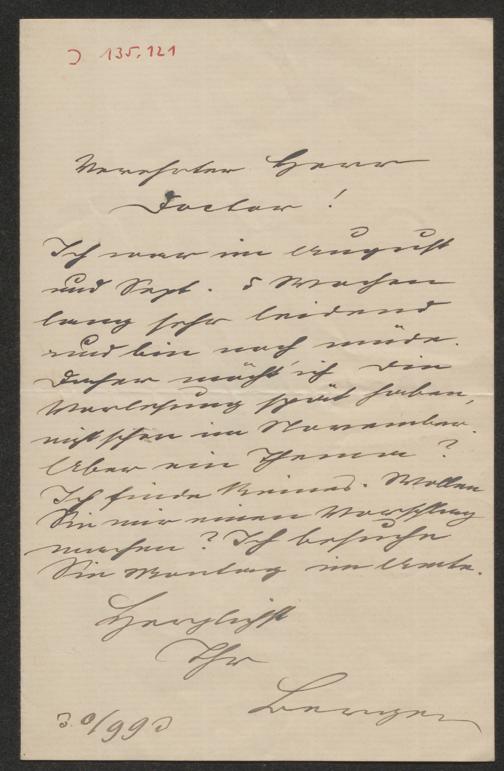 J 135.121
Verehrter Herr
Doctor!
Ich war im August
und Sept. 5 Wochen
lang sehr leidend
und bin noch müde.
Daher möcht' ich die
Vorlesung spät haben,
nicht schon im November.
Aber ein Thema?
Ich finde keines. Wollen
Sie mir einen Vorschlag
machen? Ich besuche
Sie Montag im Amte.
Herzlichst
Ihr
Berger
30/993